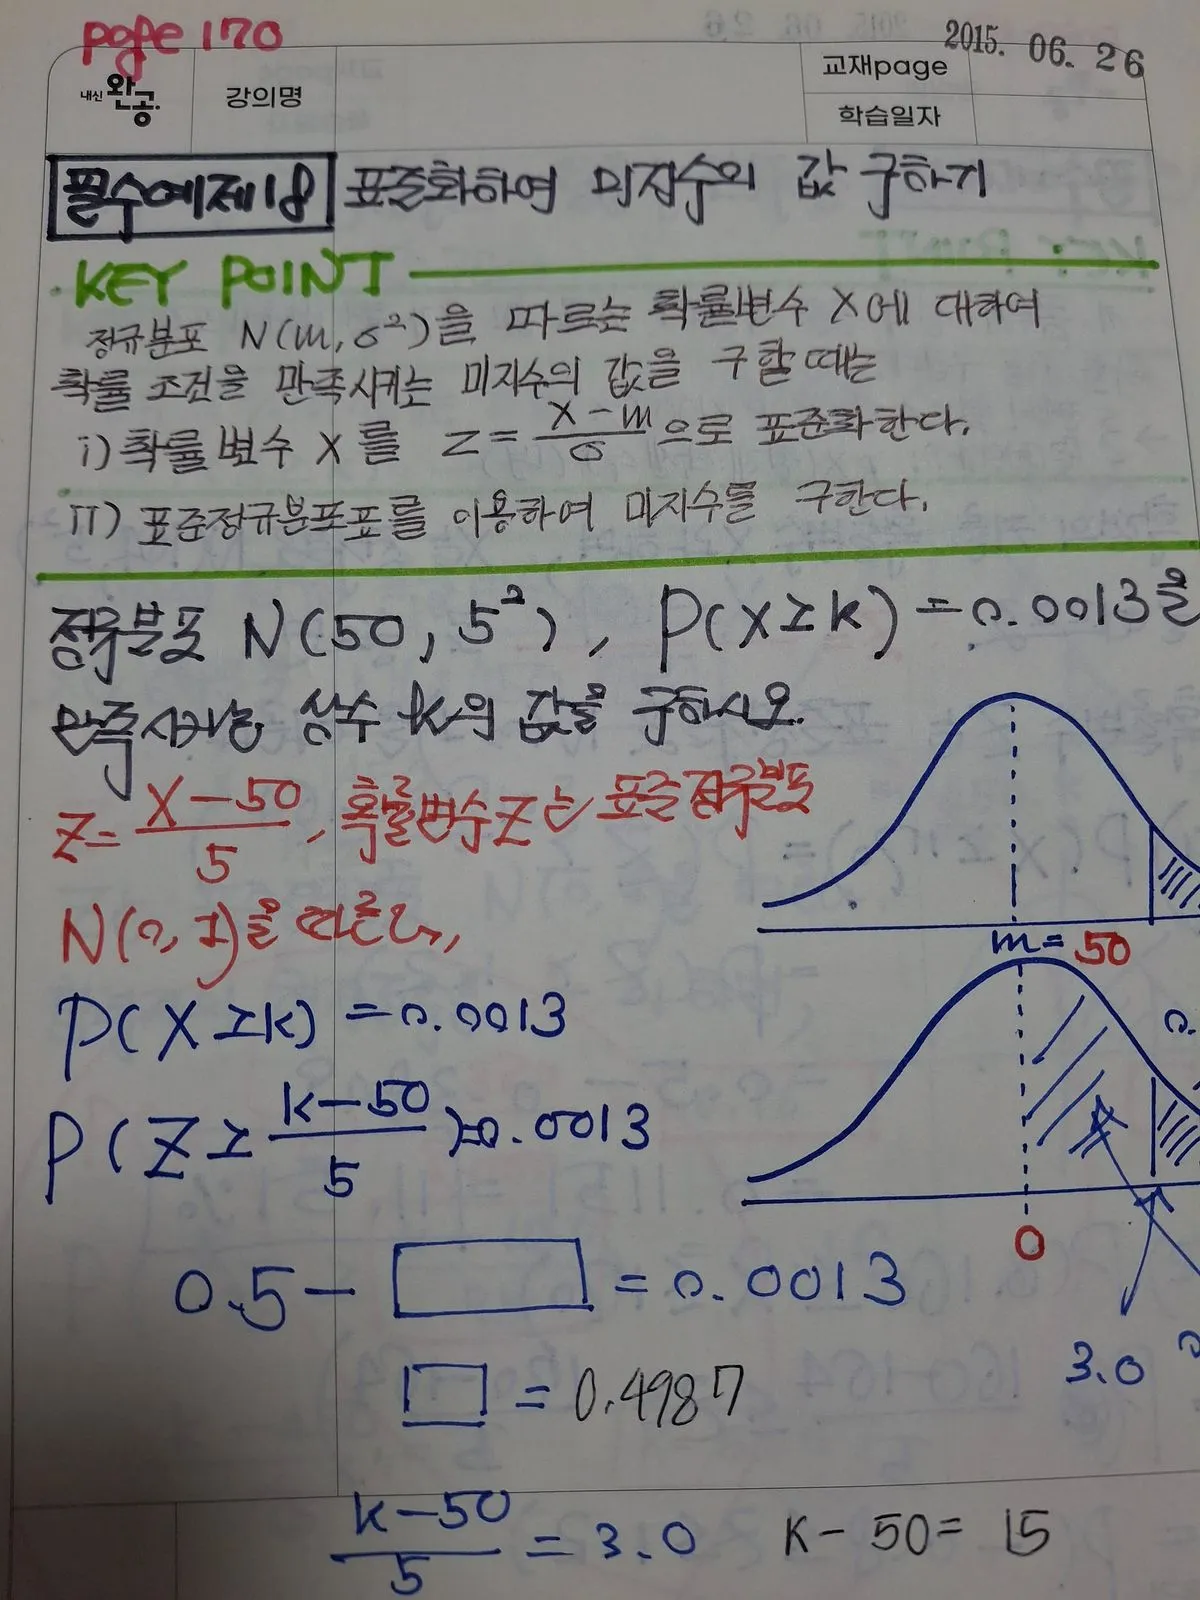 page 170
2015. 06. 26
내신 완공.
강의명
교재page
학습일자
필수예제18 표준화하여 미지수의 값 구하기
KEY POINT
정규분포 N(m, σ²)을 따르는 확률변수 X에 대하여
확률 조건을 만족시키는 미지수의 값을 구할 때는
i) 확률변수 X를 Z = (X-m)/σ 으로 표준화한다.
ii) 표준정규분포표를 이용하여 미지수를 구한다.
정규분포 N(50, 5²), P(X≥k) = 0.0013을
만족시키는 상수 k의 값을 구하시오.
Z = (X-50)/5, 확률변수 Z는 표준정규분포
N(0, 1)을 따른다,
m = 50
P(X≥k) = 0.0013
P(Z≥(k-50)/5) = 0.0013
0.
0
0.5 - □ = 0.0013
3.0
□ = 0.4987
(k-50)/5 = 3.0 k - 50 = 15